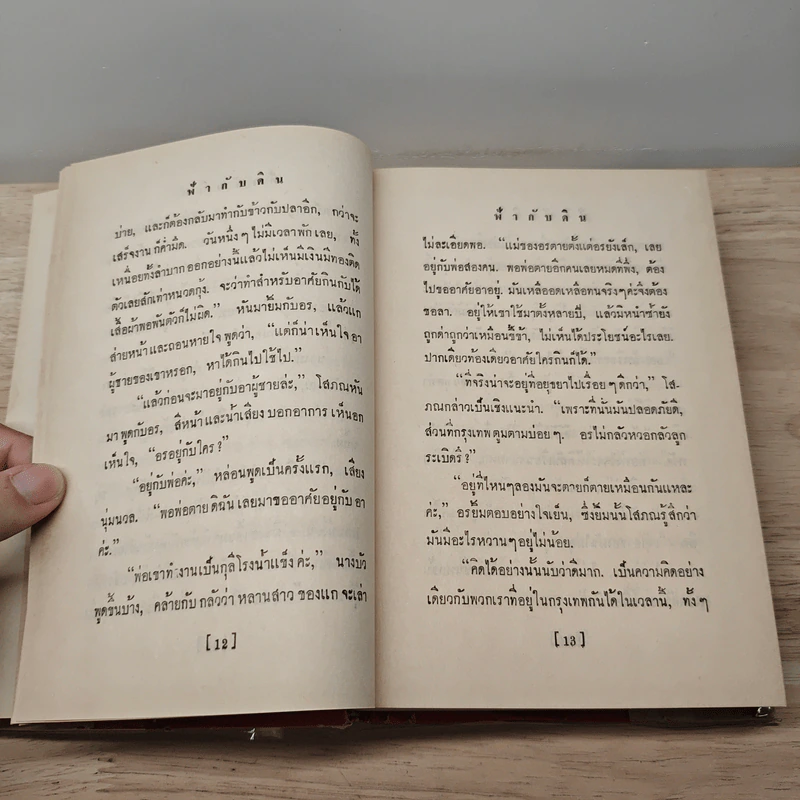 ฟ้ากับดิน
บ่าย, และก็ต้องกลับมาทำกับข้าวกับปลาอีก, กว่าจะ
เสร็จงาน ก็ค่ำมืด. วันหนึ่งๆ ไม่มีเวลาพัก เลย, ทั้ง
เหนื่อยทั้งลำบาก ออกอย่างนี้แล้วไม่เห็นมีเงินมีทองติด
ตัวเลยสักเท่าหนวดกุ้ง. จะว่าทำสำหรับอาศัยกินกับได้
เสื้อผ้าพอพันตัวก็ไม่ผิด.” หันมายิ้มกับอร, แล้วแก
ส่ายหน้า และถอนหายใจ พูดว่า, “แต่ก็น่าเห็นใจ อา
ผู้ชายของเขาหรอก, หาได้กินไปใช้ไป.”
“แล้วก่อนจะมาอยู่กับอาผู้ชายล่ะ,” โสภณหัน
มาพูดกับอร, สีหน้า และน้ำเสียง บอกอาการ เห็นอก
เห็นใจ, “อรอยู่กับใคร?”
“อยู่กับพ่อค่ะ,” หล่อนพูดเป็นครั้งแรก, เสียง
นุ่มนวล. “พอพ่อตาย ดิฉัน เลยมาขออาศัยอยู่กับ อา
ค่ะ.”
“พ่อเขาทำงานเป็นกุลีโรงน้ำแข็ง ค่ะ,” นางบัว
พูดขึ้นบ้าง, คล้ายกับ กลัวว่า หลานสาว ของแก จะเล่า
[12]
ฟ้ากับดิน
ไม่ละเอียดพอ. “แม่ของอรตายตั้งแต่อรยังเล็ก, เลย
อยู่กับพ่อสองคน. พอพ่อตายอีกคนเลยหมดที่พึ่ง, ต้อง
ไปขออาศัยอาอยู่. มันเหลืออดเหลือทนจริงๆค่ะจึงต้อง
ขอลา. อยู่ให้เขาใช้มาตั้งหลายปี, แล้วมิหนำซ้ำยัง
ถูกด่าถูกว่าเหมือนขี้ข้า, ไม่เห็นได้ประโยชน์อะไรเลย.
ปากเดียวท้องเดียวอาศัยใครกินก็ได้.”
“ที่จริงน่าจะอยู่ที่อยุธยาไปเรื่อยๆดีกว่า,” โส-
ภณกล่าวเป็นเชิงแนะนำ. “เพราะที่นั้นมันปลอดภัยดี,
ส่วนที่กรุงเทพตูมตามบ่อยๆ. อรไม่กลัวหวอกลัวลูก
ระเบิดรึ?”
“อยู่ที่ไหนๆลองมันจะตายก็ตายเหมือนกันแหละ
ค่ะ,” อรยิ้มตอบอย่างใจเย็น, ซึ่งยิ้มนั้นโสภณรู้สึกว่า
มันมีอะไรหวานๆอยู่ไม่น้อย.
“คิดได้อย่างนั้นนับว่าดีมาก. เป็นความคิดอย่าง
เดียวกับพวกเราที่อยู่ในกรุงเทพกันได้ในเวลานี้, ทั้งๆ
[13]